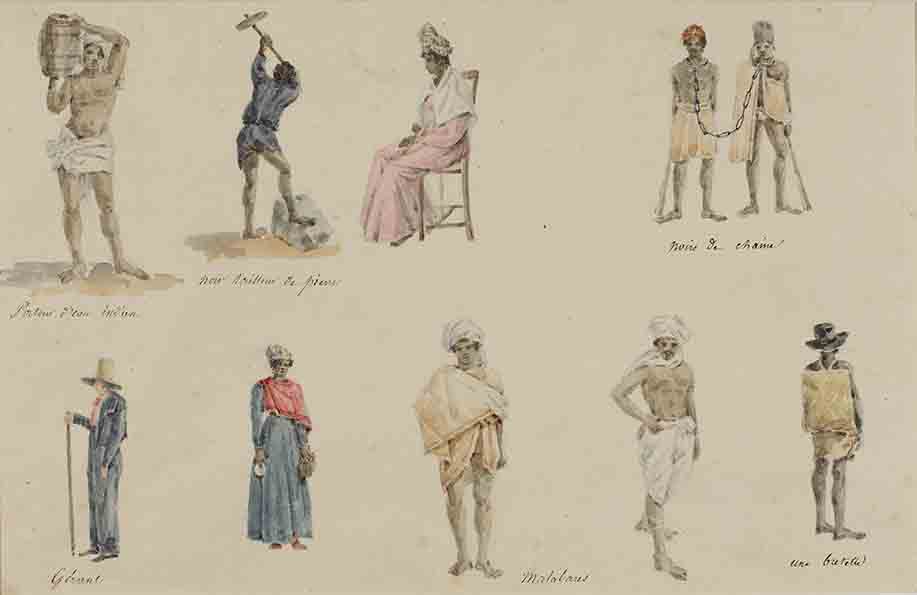 Porteur d'eau indien
noir tailleur de pierre
noirs de chaîne
Gérant
Malabares
une bretelle